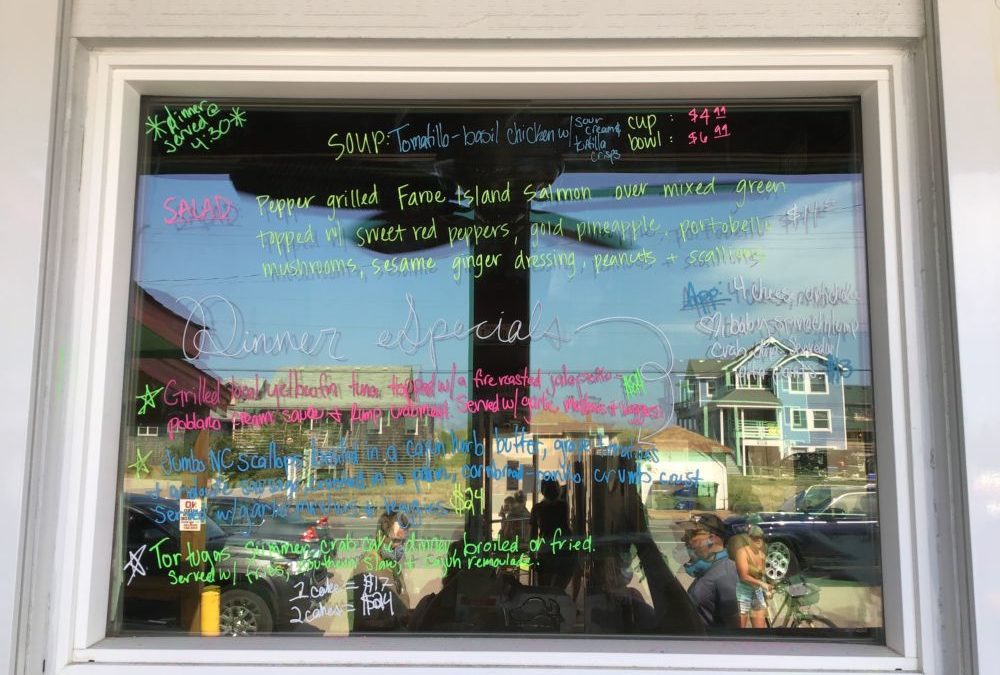 *Dinner @ *
Served
4:30
SOUP: Tomatillo-basil chicken w/ sour cream & tortilla crisps
cup : $4.99
bowl : $6.99
SALAD: Pepper grilled Faroe Island Salmon over mixed green
topped w/ sweet red peppers, gold pineapple, portobello
mushrooms, sesame ginger dressing, peanuts + scallions
App: 4 cheese,
crab
Dinner Specials
Grilled local yellowfin tuna topped w/ a fire roasted jalapeño-
poblano cream sauce + lump crabmeat. Served w/ garlic mashers + veggies!
Jumbo NC scallops broiled in a cajun herb butter, grape tomatoes
+ andouille sausage covered in a cornbread-panko crumb crust
Served w/ garlic mashers + veggies. $24
Tortugas summer crab cake dinner, broiled or fried.
Served w/ fries, southern slaw, + cajun remoulade.
1 cake = $17
2 cakes = $24